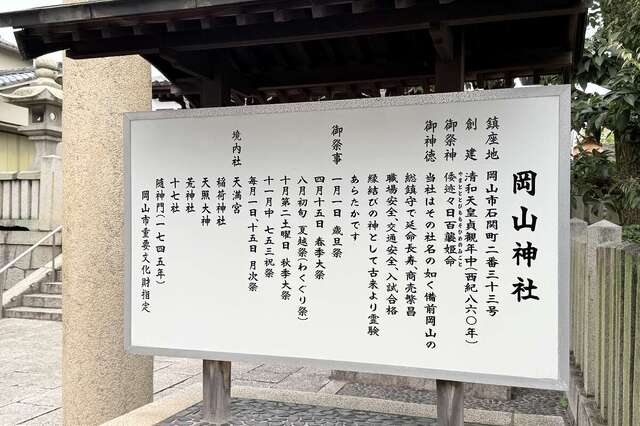 岡山神社
鎮座地 岡山市石関町二番三十三号
創建 清和天皇貞観年中(西紀八六〇年)
御祭神 倭迹々日百襲姫命
やまとととひももそひめのみこと
御神徳 当社はその社名の如く備前岡山の
総鎮守で延命長寿、商売繁昌
職場安全、交通安全、入試合格
縁結びの神として古来より霊験
あらたかです
御祭事 一月一日 歳旦祭
四月十五日 春季大祭
八月初旬 夏越祭(わくぐり祭)
十月第二土曜日 秋季大祭
十一月中 七五三祝祭
毎月一日、十五日 月次祭
境内社 天満宮
稲荷神社
天照大神
荒神社
十七社
随神門(一七四五年)
岡山市重要文化財指定